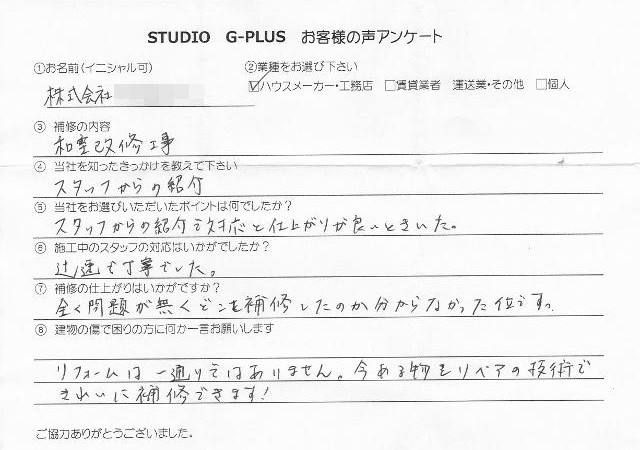 STUDIO G-PLUS お客様の声アンケート
①お名前(イニシャル可) ②業種をお選び下さい
株式会社 ☑ハウスメーカー・工務店 □賃貸業者 運送業・その他 □個人
③ 補修の内容
和室改修工事
④ 当社を知ったきっかけを教えて下さい
スタッフからの紹介
⑤ 当社をお選びいただいたポイントは何でしたか?
スタッフからの紹介で対応と仕上がりが良いときいた。
⑥ 施工中のスタッフの対応はいかがでしたか?
迅速で丁寧でした。
⑦ 補修の仕上がりはいかがですか?
全く問題が無くどこを補修したのか分からなかった位ですっ
⑧ 建物の傷で困りの方に何か一言お願いします
リフォームは一通りではありません。今ある物をリペアの技術で
きれいに補修できます!
ご協力ありがとうございました。